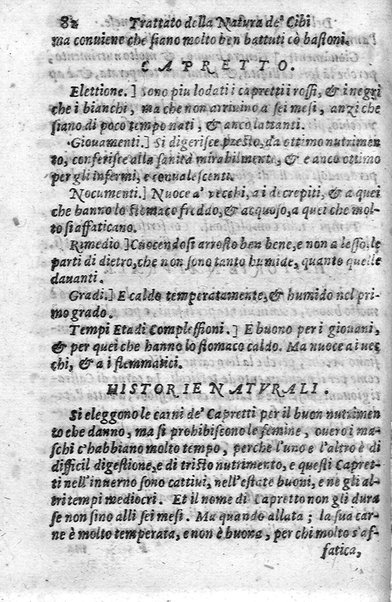 82 Trattato della Natura de' Cibi
ma conuiene che siano molto ben battuti cō bastoni.
CAPRETTO.
Elettione.] sono piu lodati i capretti i rossi, & i negri
che i bianchi, ma che non arriuino a sei mesi, anzi che
siano di poco tempo nati, & anco lattanti.
Giouamenti.] Si digerisce presto, da ottimo nutrimen
to, conferisce alla sanità mirabilmente, & è anco ottimo
per gli infermi, e conualescenti.
Nocumenti.] Nuoce a' vecchi, a i decrepiti, & a quei
che hanno lo stomaco freddo, & acquoso, a quei che mol-
to si affaticano.
Rimedio.] Cuocendosi arrosto ben bene, e non a lesso, le
parti di dietro, che non sono tanto humide, quanto quelle
dauanti.
Gradi.] E caldo temperatamente, & humido nel pri
mo grado.
Tempi Etadi Complessioni.] E buono per i giouani,
& per quei che hanno lo stomaco caldo. Ma nuoce a i uec
chi, & a i flemmatici.
HISTORIE NATVRALI.
Si eleggono le carni de' Capretti per il buon nutrimen
to che danno, ma si prohibiscono le femine, ouero i ma-
schi c'habbiano molto tempo, perche l'uno e l'altro è di
difficil digestione, e di tristo nutrimento, e questi Capret
ti nell'inuerno sono cattiui, nell'estate buoni, e nè gli al-
tri tempi mediocri. Et il nome di Capretto non gli dura
se non sino alli sei mesi. Ma quando allatta; la sua car-
ne è molto temperata, e non è buona, per chi molto s'af-
fatica,